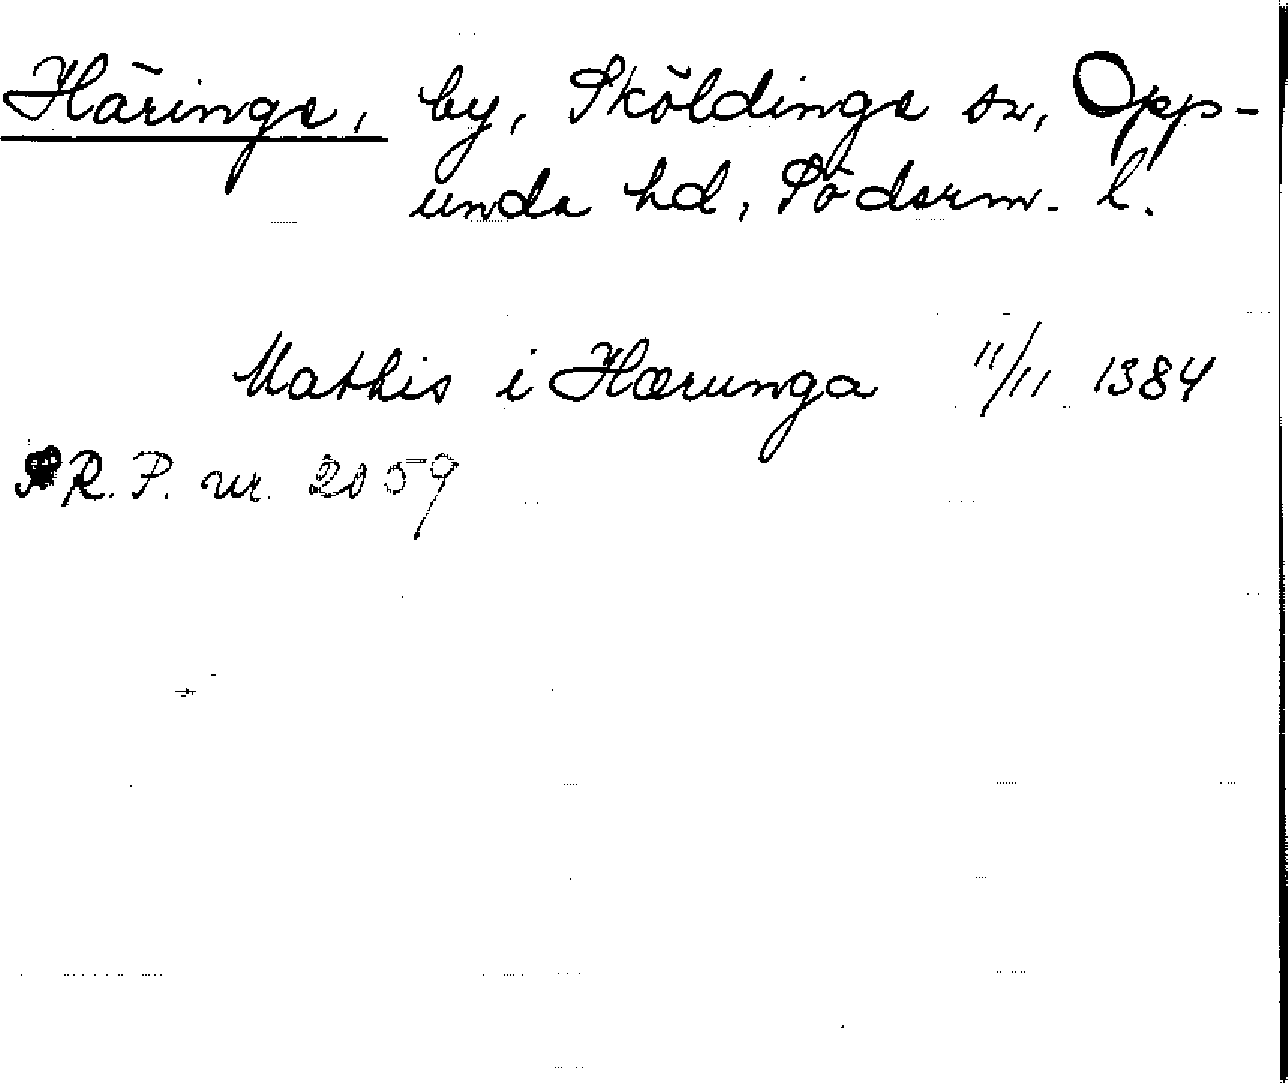 Häringe, by, Sköldinge sn, Opp-
unda hd, Söderm. l.
Mathis i Hærunga 11/11 1384
R. P. nr. 2059